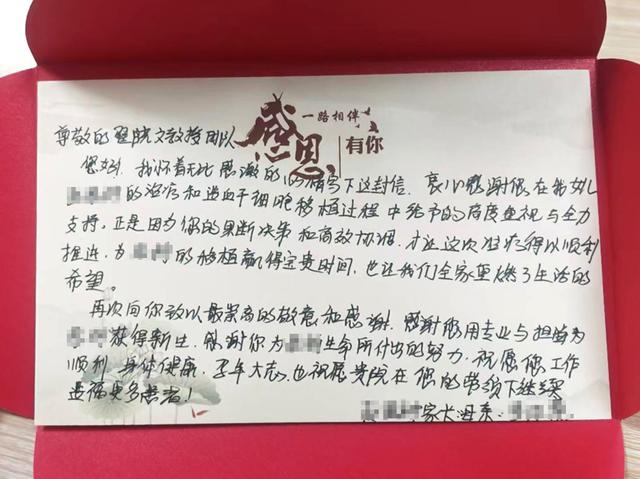 感恩
一路相伴
有你
尊敬的翟晓文教授团队
您好！我怀着无比感激的心情写下这封信。衷心感谢您在我女儿
的治疗和造血干细胞移植过程中给予的高度重视与全力
支持。正是因为你的果断决策和高效协调，才让这次进程得以顺利
推进，为 的移植赢得宝贵时间，也让我们全家重燃了生活的
希望。
再次向你致以最崇高的敬意和感谢，感谢你用专业与担当为
获得新生，感谢你为 生命所付出的努力，祝愿您工作
顺利，身体健康，万年大志，也祝愿贵院在您的带领下继续
造福更多患者！
家长 母亲：